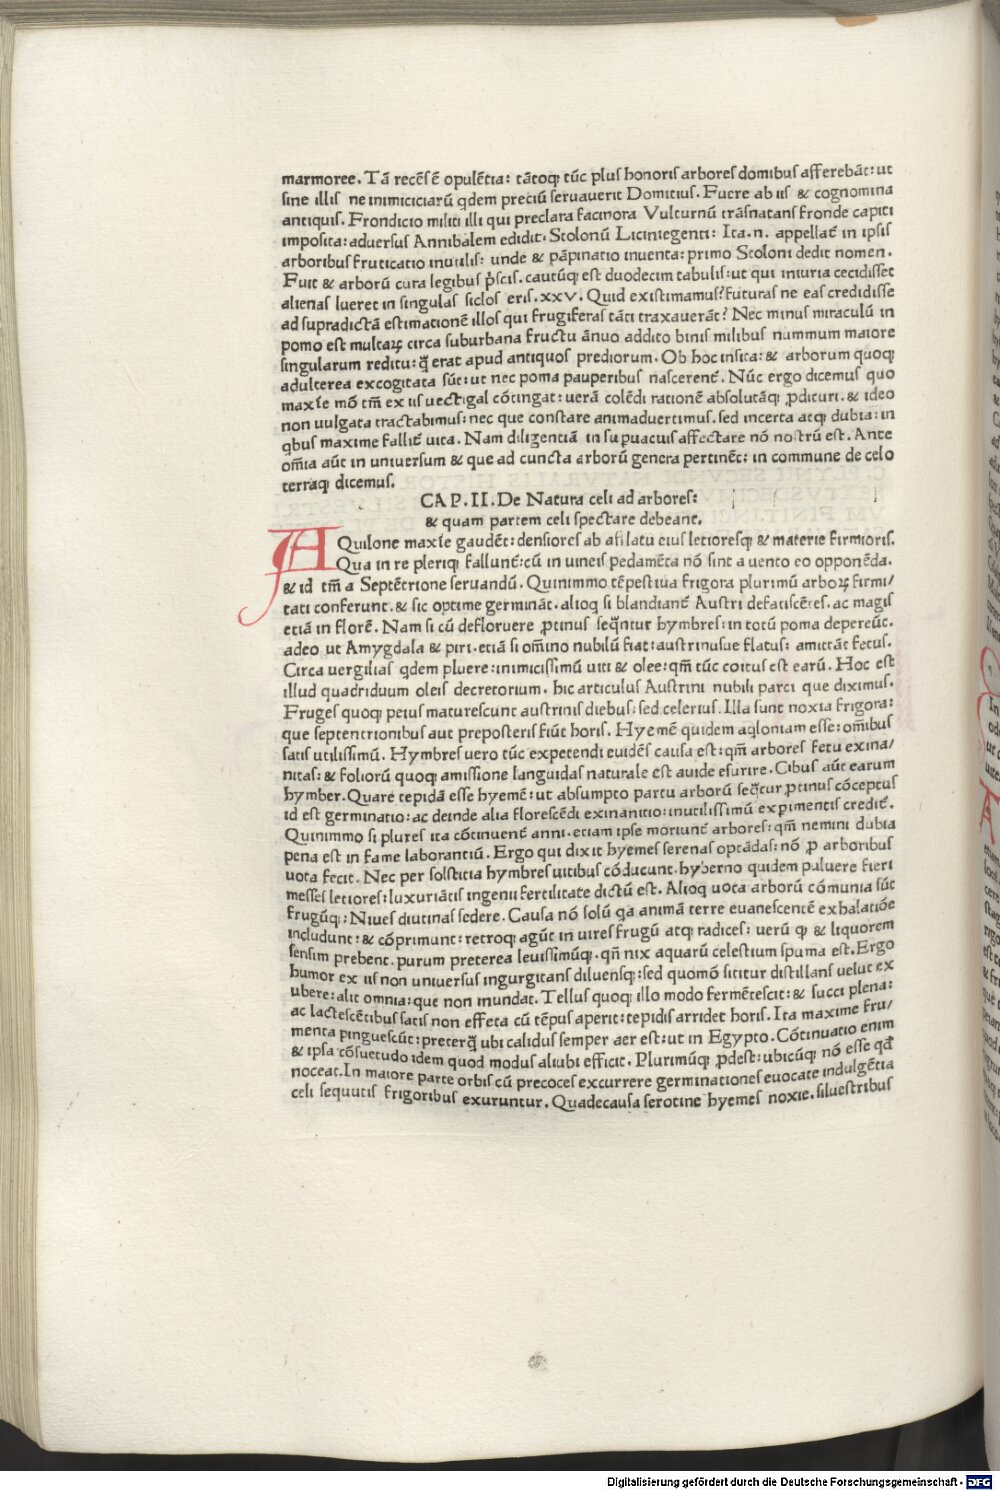 marmoree. Tā recēſē opulētia: tātoq; tūc pluſ honoriſ arboreſ domibuſ afferebāt: ut
ſine illiſ ne inimiciciarū qdem preciū ſeruauerit Domitiuſ. Fuere ab iiſ & cognomina
antiquiſ. Frondicio militi illi qui preclara facinora Vulturnū trāſnatanſ fronde capiti
impoſita: aduerſuſ Annibalem edidit: Stolonū Liciniegenti: Ita .n. appellat̄ in ipſiſ
arboribuſ fruticatio inutiliſ: unde & pāpinatio inuenta: primo Stoloni dedit nomen.
Fuit & arborū cura legibuſ p̄ſciſ. cautūq; eſt duodecim tabuliſ: ut qui iniuria cecidiſſet
alienaſ lueret in ſingulaſ ſicloſ eriſ. xxv. Quid exiſtimamuſ? futuraſ ne eaſ credidiſſe
ad ſupradictā eſtimationē illoſ qui frugiferaſ tāti traxauerāt? Nec minuſ miraculū in
pomo eſt multaꝝ circa ſuburbana fructu ānuo addito biniſ milibuſ nummum maiore
ſingularum reditu: q̄ erat apud antiquoſ prediorum. Ob hoc inſita: & arborum quoq;
adulterea excogitata ſūt: ut nec poma pauperibuſ naſcerent̄. Nūc ergo dicemuſ quo
maxīe mō tm̄ ex iiſ uectigal cōtingat: uerā colēdi rationē abſolutāq; ꝓdituri. & ideo
non uulgata tractabimuſ: nec que conſtare animaduertimuſ. ſed incerta atq; dubia: in
qbuſ maxime fallit̄ uita. Nam diligentiā in ſupuacuiſ affectare nō noſtrū eſt. Ante
om̄ia aūt in uniuerſum & que ad cuncta arborū genera pertinēt: in commune de celo
terraq; dicemuſ.
CAP. II. De Natura celi ad arboreſ:
& quam partem celi ſpectare debeant.
AQuilone maxīe gaudēt: denſioreſ ab afflatu eiuſ letioreſq; & materie firmioriſ.
Qua in re pleriq; fallunt̄: cū in uineiſ pedamēta nō ſint a uento eo opponēda.
& id tm̄ a Septētrione ſeruandū. Quinimmo tēpeſtiua frigora plurimū arboꝝ firmi/
tati conferunt. & ſic optime germināt. alioq; ſi blandiant̄ Auſtri defatiſcēteſ. ac magiſ
etiā in florē. Nam ſi cū defloruere ꝓtinuſ ſeq̄ntur hymbreſ: in totū poma depereūt.
adeo ut Amygdala & piri. etiā ſi om̄ino nubilū fiat: auſtrinuſue flatuſ: amittāt fetuſ.
Circa uergiliaſ qdem pluere: inimiciſſimū uiti & olee: qm̄ tūc coituſ eſt earū. Hoc eſt
illud quadriduum oleiſ decretorium. hic articuluſ Auſtrini nubili parci que diximuſ.
Frugeſ quoq; peiuſ matureſcunt auſtriniſ diebuſ: ſed celeriuſ. Illa ſunt noxia frigora:
que ſeptentrionibuſ aut prepoſteriſ fiūt horiſ. Hyemē quidem aqloniam eſſe: om̄ibuſ
ſatiſ utiliſſimū. Hymbreſ uero tūc expetendi euidēſ cauſa eſt: qm̄ arboreſ fetu exina/
nitaſ: & foliorū quoq; amiſſione languidaſ naturale eſt auide eſurire. Cibuſ aūt earum
hymber. Quare tepidā eſſe hyemē: ut abſumpto partu arborū ſeq̄tur ꝓtinuſ cōceptuſ
id eſt germinatio: ac deinde alia floreſcēdi exinanitio: inutiliſſimū exꝑimentiſ credit̄.
Quinimmo ſi plureſ ita cōtinuent̄ anni. etiam ipſe moriunt̄ arboreſ: qm̄ nemini dubia
pena eſt in fame laborantiū. Ergo qui dixit hyemeſ ſerenaſ optādaſ: nō ꝓ arboribuſ
uota fecit. Nec per ſolſtitia hymbreſ uitibuſ cōducunt. hyberno quidem puluere fieri
meſſeſ letioreſ: luxuriātiſ ingenii fertilitate dictū eſt. Alioq; uota arborū cōmunia ſūt
frugūq;: Niueſ diutinaſ ſedere. Cauſa nō ſolū qa animā terre euaneſcentē exhalatiōe
includunt: & cōprimunt: retroq; agūt in uireſ frugū atq; radiceſ: uerū ꝙ & liquorem
ſenſim prebent. purum preterea leuiſſimūq;. qn̄ nix aquarū celeſtium ſpuma eſt. Ergo
humor ex iiſ non uniuerſuſ ingurgitanſ diluenſq;: ſed quomō ſititur diſtillanſ uelut ex
ubere: alit omnia: que non inundat. Telluſ quoq; illo modo fermēteſcit: & ſucci plena:
ac lacteſcētibuſ ſatiſ non effeta cū tēpuſ aperit: tepidiſ arridet horiſ. Ita maxime fru/
menta pingueſcūt: preterq̄ ubi caliduſ ſemper aer eſt: ut in Egypto. Cōtinuatio enim
& ipſa cōſuetudo idem quod moduſ aliubi efficit. Plurimūq; ꝓdeſt: ubicūq; nō eſſe qd̄
noceat. In maiore parte orbiſ cū precoceſ excurrere germinationeſ euocate indulgētia
celi ſequutiſ frigoribuſ exuruntur. Quadecauſa ſerotine hyemeſ noxie. ſilueſtribuſ
Digitalisierung gefördert durch die Deutsche Forschungsgemeinschaft - DFG